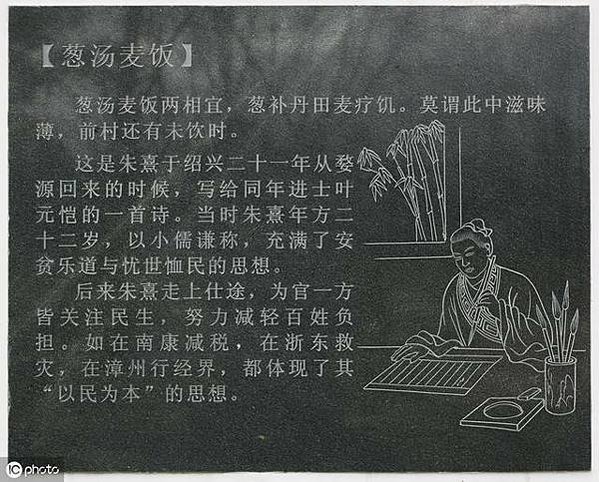 【葱汤麦饭】
葱汤麦饭两相宜，葱补丹田麦疗饥。莫谓此中滋味
薄，前村还有未饮时。
这是朱熹于绍兴二十一年从婺
源回来的时候，写给同年进士叶
元恺的一首诗。当时朱熹年方二
十二岁，以小儒谦称，充满了安
贫乐道与忧世恤民的思想。
后来朱熹走上仕途，为官一方
皆关注民生，努力减轻百姓负
担。如在南康减税，在浙东救
灾，在漳州行经界，都体现了其
“以民为本”的思想。
IC photo